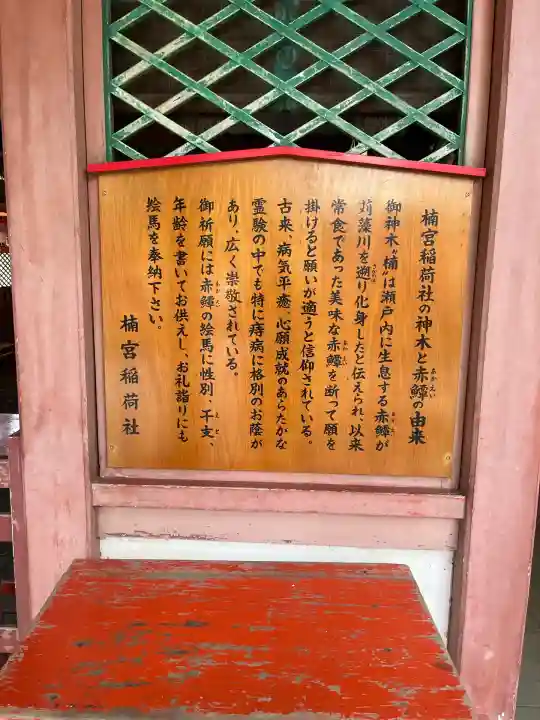 楠宮稲荷社の神木と赤鱏の由来
御神木“楠”は瀬戸内に生息する赤鱏が
苅藻川を遡り化身したと伝えられ、以来
常食であった美味な赤鱏を断って願を
掛けると願いが適うと信仰されている。
古来、病気平癒、心願成就のあらたかな
霊験の中でも特に痔病に格別のお蔭が
あり、広く崇敬されている。
御祈願には赤鱏の絵馬に性別・干支、
年齢を書いてお供えし、お礼詣りにも
絵馬を奉納下さい。
楠宮稲荷社